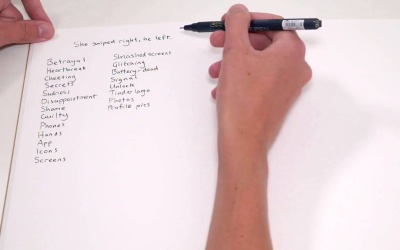 She swiped right, he left.
Betrayal
Heartbreak
Cheating
Secrets
Sadness
Disappointment
Shame
Guilty
Phones
Hands
App
Icons
Screens
Smashed screens
Glitching
Battery-dead
Signal
Unlock
Tinder logo
Photos
Profile pics